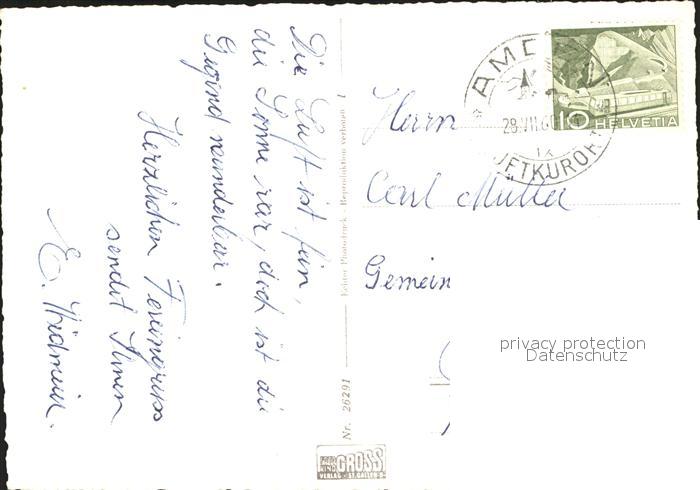 Die Luft ist fein,
die Sonne rar, doch ist die
Gegend wunderbar.
Herzlichen Feriengruss
sendet Ihnen
E.
Nr. 26291
Echter Photodruck - Reproduktion verboten
GROSS
AMDEN
28.VII.60
LUFTKURORT
10 HELVETIA
Herrn
Carl Müller
Gemein
privacy protection
Datenschutz